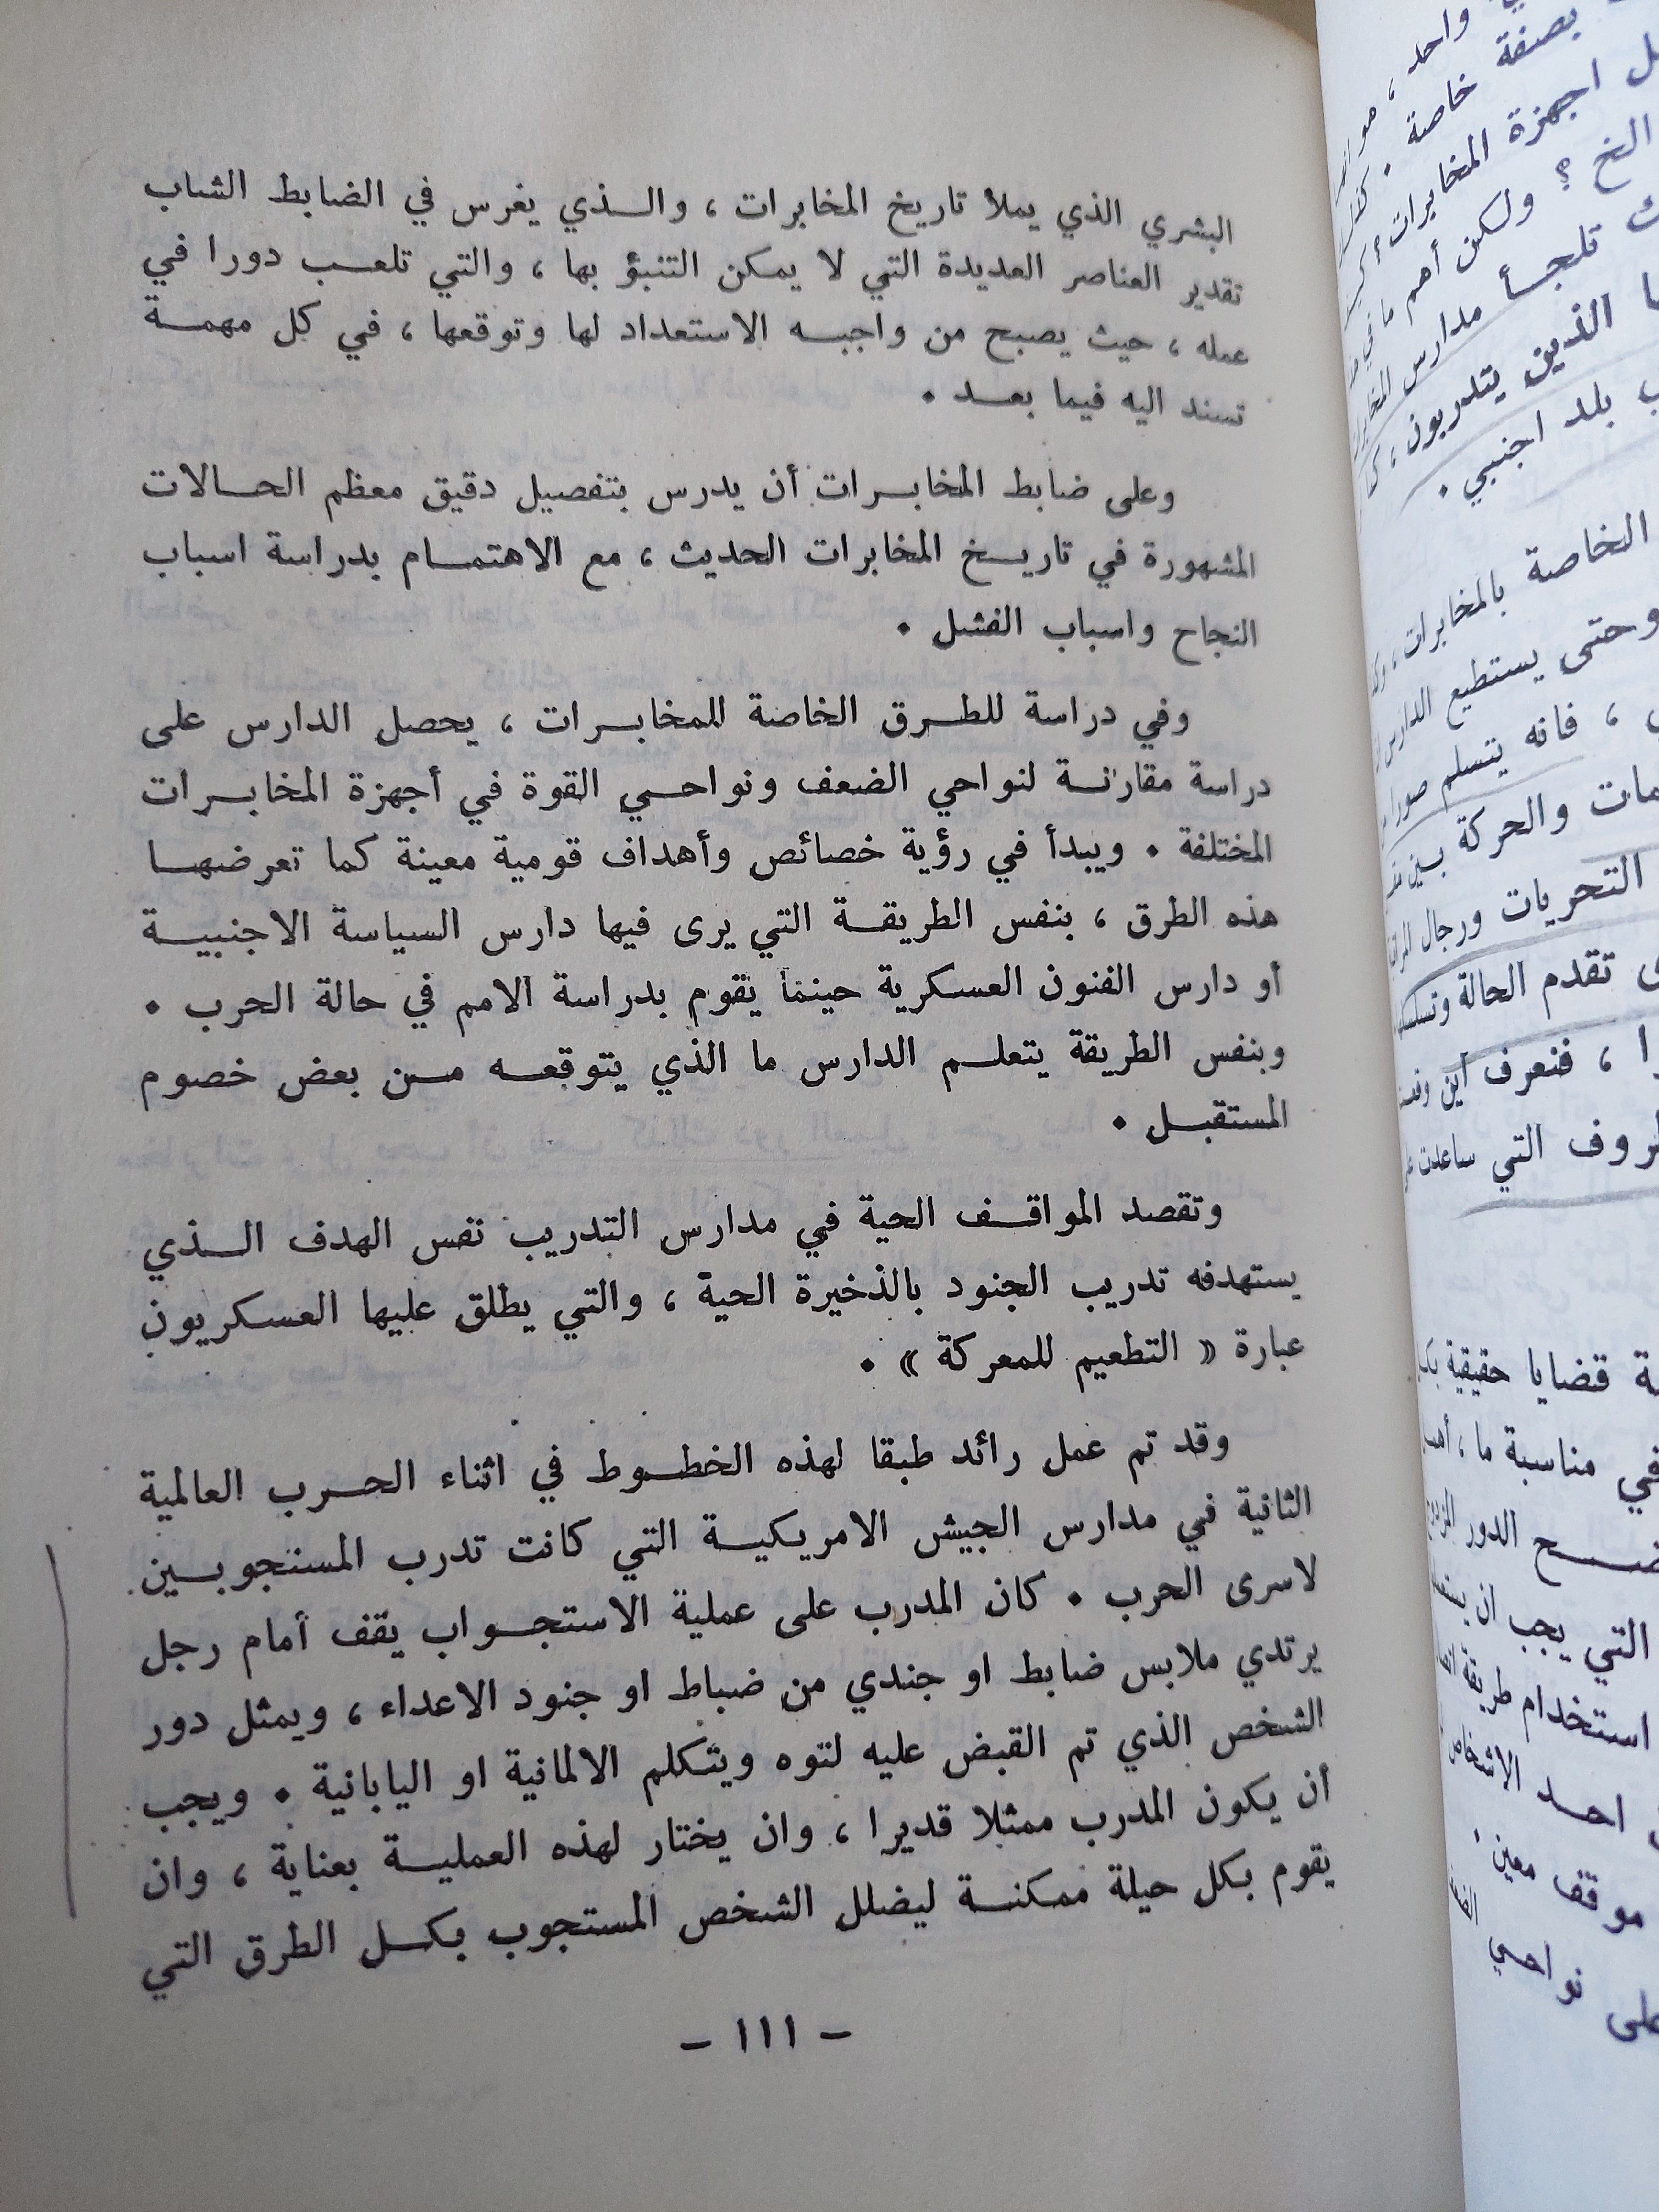 البشري الذي يملأ تاريخ المخابرات ، والـــذي يغرس في الضابط الشاب
تقدير العناصر العديدة التي لا يمكن التنبؤ بها ، والتي تلعـــب دورا في
عمله ، حيث يصبح من واجبـــه الاستعداد لها وتوقعها ، في كل مهمـــة
تسند اليه فيما بعـــد .
وعلى ضابط المخابـــرات أن يدرس بتفصيل دقيق معظم الحـــالات
المشهورة في تاريـــخ المخابرات الحديث ، مع الاهتمـــام بدراسة اسباب
النجاح واسباب الفشل .
وفي دراسة للطـــرق الخاصة للمخابـــرات ، يحصل الدارس على
دراسة مقارنـــة لنواحي الضعف ونواحـــي القوة في أجهزة المخابـــرات
المختلفة . ويبدأ في رؤية خصائص وأهداف قومية معينة كما تعرضهـــا
هذه الطرق ، بنفس الطريقـــة التي يرى فيها دارس السياسة الاجنبيـــة
أو دارس الفنون العسكرية حينما يقوم بدراسة الامم في حالة الحرب .
وبنفس الطريقة يتعلـــم الدارس ما الذي يتوقعـــه مـــن بعض خصوم
المستقبـــل .
وتقصد المواقـــف الحية في مدارس التدريب نفس الهدف الـــذي
يستهدفه تدريب الجنود بالذخيرة الحية ، والتي يطلق عليها العسكريون
عبارة « التطعيم للمعركة » .
وقد تم عمل رائد طبقا لهذه الخطـــوط في اثناء الحـــرب العالمية
الثانية في مدارس الجيش الامريكيـــة التي كانت تدرب المستجوبـــين
لاسرى الحرب . كان المدرب على عملية الاستجـــواب يقف أمام رجل
يرتدي ملابس ضابط او جندي من ضباط او جنود الاعداء ، ويمثل دور
الشخص الذي تم القبض عليه لتوه ويتكلم الالمانية او اليابانية . ويجب
أن يكون المدرب ممثلا قديرا ، وان يختار لهذه العمليـــة بعناية ، وان
يقوم بكل حيلة ممكنـــة ليضلل الشخص المستجوب بكـــل الطرق التي
- ١١١ -
واحد ،
بصفة خاصة .
اجهزة المخابرات
الخ ؟ ولكن أهم ما في
تلجـــأ مدارس
الذين يتدربون ،
بلد اجنبي .
الخاصة بالمخابرات ،
وحتى يستطيع الدارس
، فانه يتسلم
والحركة بـــين
التحريات ورجال
تقدم الحالة
، فنعرف أين
التي ساعدت
قضايا حقيقية
في مناسبة ما ،
الدور
التي يجب ان
استخدام طريقة
احـــد الاشخاص
موقف معين .
نواحـــي